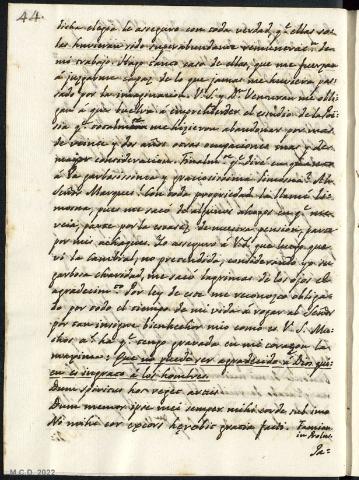 44.
dicha elegia le aseguro con toda verdad, q.e ellas so-
las huvieran sido superabundante remuneraci.n de
mi trabajo. Hago tanto caso de ellas, que me fuerzan
á juzgarme capaz de lo que jamas me huviera pa-
sado por la imaginacion. V.S. y D.n me obli-
gan á que buelva á emprehender el estudio de la Poe-
sia q.e totalm.te me hizieron abandonar por mas
de veinte y dos años otras ocupaciones mas y de
mayor consideracion. Finalm.te q.e diré en q.to
á la larguissima y graciosissima limosna? Ah
Señor Marques! Con toda propriedad la llamo li-
mosna, pues me sacó de algunos ahogos en q.e me
veia, parte por la escasez de nuestra pension, parte
por mis achaques. Le asseguro á V.S. que luego que
vi la cantidad, no pretendida, considerando su ge-
nerosa charidad, me sacó lagrimas de los ojos el
agradecim.to Por ley de este me reconozco obliga-
do por todo el tiempo de mi vida á rogar al Señor
por tan insigne bienhechor mio como es V.S. Mu-
chos a.s ha q.e tengo gravada en mi corazon la
maxima: Que no puede ser agradecido á Dios qui-
en es ingrato á los hombres.
Dum spiritus hos reget artus
Dum memor ipse mei semper mihi corde sub imo
Ni mihi cor gratia facti.
Ja-
M.C.D. 2022